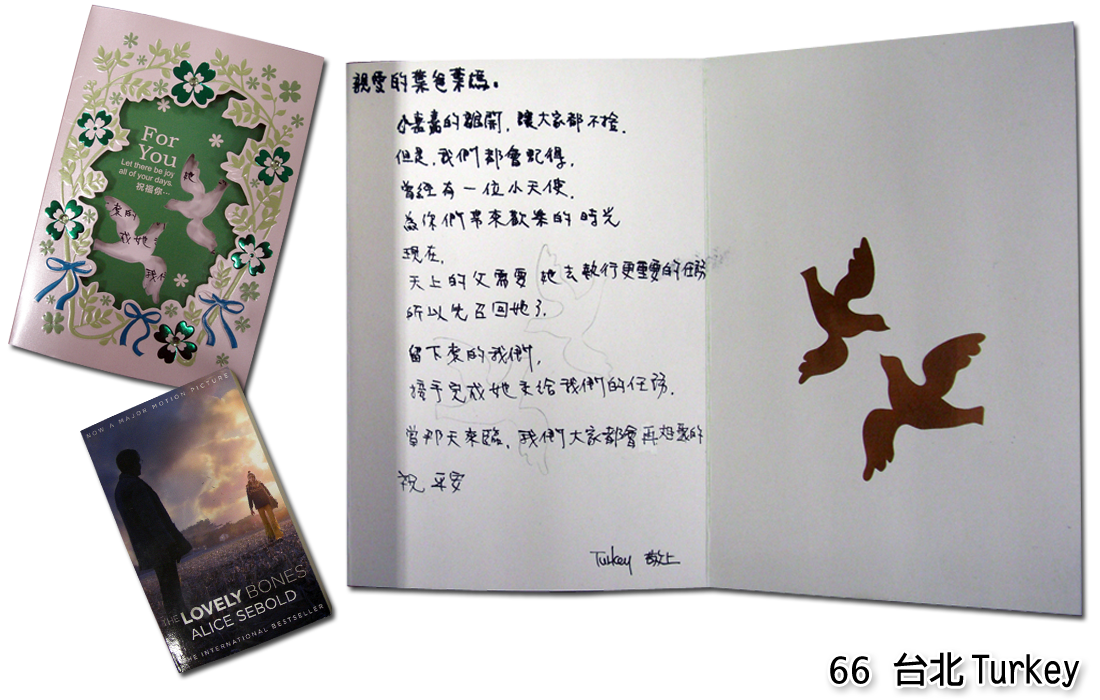 For
You
Let there be joy
all of your days.
祝福你…
她
來的
成她
我們
NOW A MAJOR MOTION PICTURE
THE LOVELY BONES
ALICE SEBOLD
THE INTERNATIONAL BESTSELLER
親愛的葉爸葉媽。
小嘉嘉的離開,讓大家都不捨,
但是,我們都會記得,
曾經有一位小天使,
為你們帶來歡樂的時光
現在,
天上的父需要她去執行更重要的任務
所以先召回她了.
留下來的我們,
接手完成她交給我們的任務.
當那天來臨,我們大家都會再相聚的
祝 平安
Turkey 敬上
66 台北 Turkey